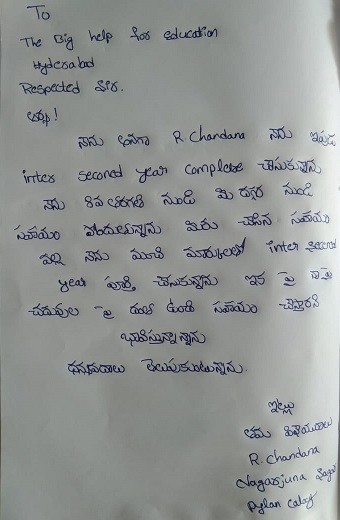 To
The Big help for education
Hyderabad
Respected సార్.
అమ్మా!
నేను అనగా R. Chandana నేను ఇప్పుడు
inter second year complete చేసుకున్నాను
నేను 6వ తరగతి నుండి మీ దగ్గర నుండి
సహాయం పొందుతున్నాను మీరు చేసిన సహాయం
వల్ల నేను మంచి మార్కులతో inter second
year పూర్తి చేసుకున్నాను ఇక పై నా
చదువుల పై దయ ఉంచి సహాయం చేస్తారని
భావిస్తున్నాను
ధన్యవాదాలు తెలుపుకుంటున్నాను.
ఇట్లు
తమ విధేయురాలు
R. Chandana
Nagarjuna Sagar
Pylan